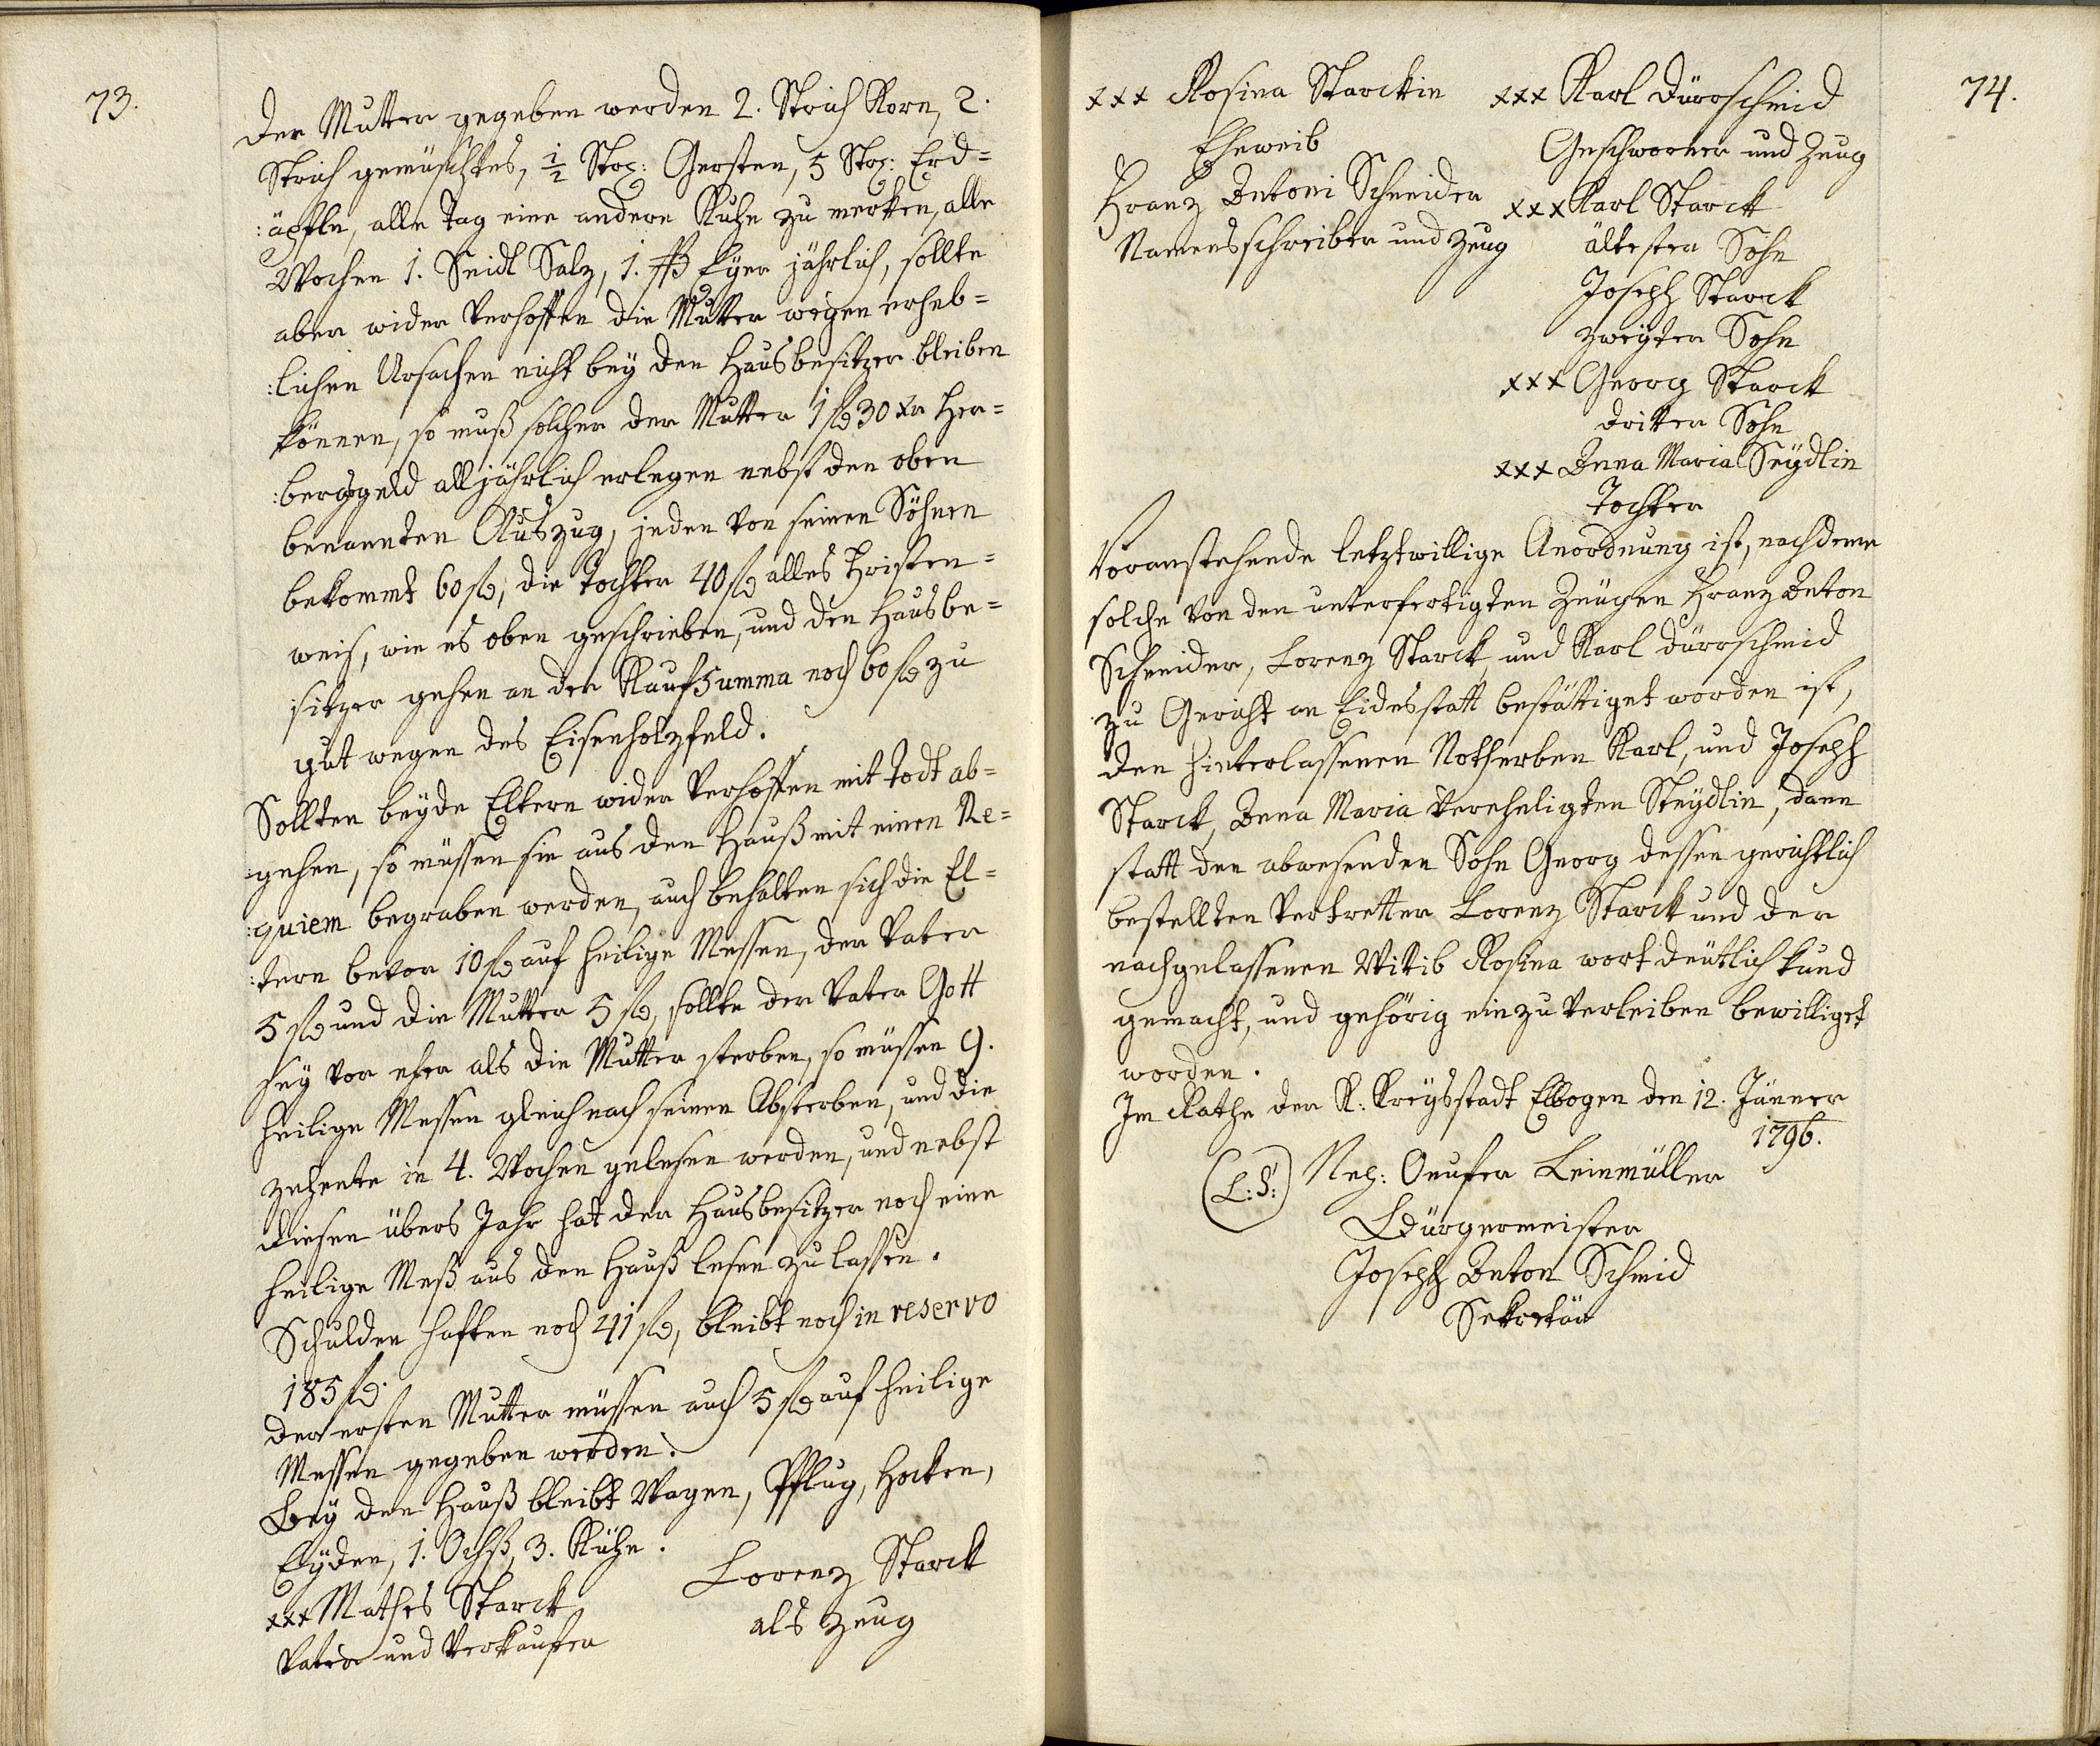 73.
der Mutter gegeben werden 2. Strich Korn, 2.
Strich gemüschtes, ½ Str: Gersten, 5 Str: Erd=
:äpfln, alle Tag eine andere Kuhe zu merken, alle
Wochen 1. Seidl Salz, 1. ßß Eÿer jährlich, sollte
aber wider Verhoffen die Mutter wegen erheb=
:lichen Ursachen nicht beÿ den Hausbesitzer bleiben
können, so muß solcher der Mutter 1 f 30 xr Her=
:berggeld alljährlich erlegen nebst den oben
benannten Auszug, jeden von seinen Söhnen
bekommt 60 f, die Tochter 40 f alles Fristen=
weis, wie es oben geschrieben, und den Hausbe=
:sitzer gehen an der Kaufsumma noch 60 f zu
gut wegen des Eisenholzfeld.
Sollten beÿde Eltern wider Verhoffen mit Todt ab=
:gehen, so müssen sie aus den Hauß mit einen Re=
:quiem begraben werden, auch behalten sich die El=
:tern bevor 10 f auf heilige Messen, der Vater
5 f und die Mutter 5 f, sollte der Vater Gott
seÿ vor eher als die Mutter sterben, so müssen 9.
heilige Messen gleich nach seinen Absterben, und die
zehente in 4. Wochen gelesen werden, und nebst
diesen übers Jahr hat der Hausbesitzer noch eine
heilige Meß aus den Hauß lesen zu lassen.
Schulden haften noch 41 f, bleibt noch in reservo
185 f.
der ersten Mutter müssen auch 5 f auf heilige
Messen gegeben werden.
Beÿ den Hauß bleibt Wagen, Pflug, Hocken,
Eÿden, 1. Ochß, 3. Kühe.
xxx Mathes Starck
Vater und Verkaufer
Lorenz Starck
als Zeug
74.
xxx Rosina Starckin
Eheweib
Franz Antoni Schneider
Namensschreiber und Zeug
xxx Karl Dürrschmid
Geschworner und Zeug
xxx Karl Starck
ältester Sohn
Joseph Starck
zweÿter Sohn
xxx Georg Starck
dritter Sohn
xxx Anna Maria Seÿdlin
Tochter
Voranstehende letztwillige Anordnung ist, nachdeme
solche von den unterfertigten Zeugen Franz Anton
Schneider, Lorenz Starck, und Karl Dürrschmid
zu Gericht an Eidesstatt bestättiget worden ist,
den hinterlassenen Notherben Karl, und Joseph
Starck, Anna Maria verehligten Seÿdlin, dann
statt den abwesenden Sohn Georg dessen gerichtlich
bestellten Vertretter Lorenz Starck und der
nachgelassenen Witib Rosina wort deutlich kund
gemacht, und gehörig einzuverleiben bewilliget
worden.
Im Rathe der K: Kreÿsstadt Elbogen den 12. Jänner
1796.
(L:S:) Nep: Onufer Leinmüller
Bürgermeister
Joseph Anton Schmid
Sekretär